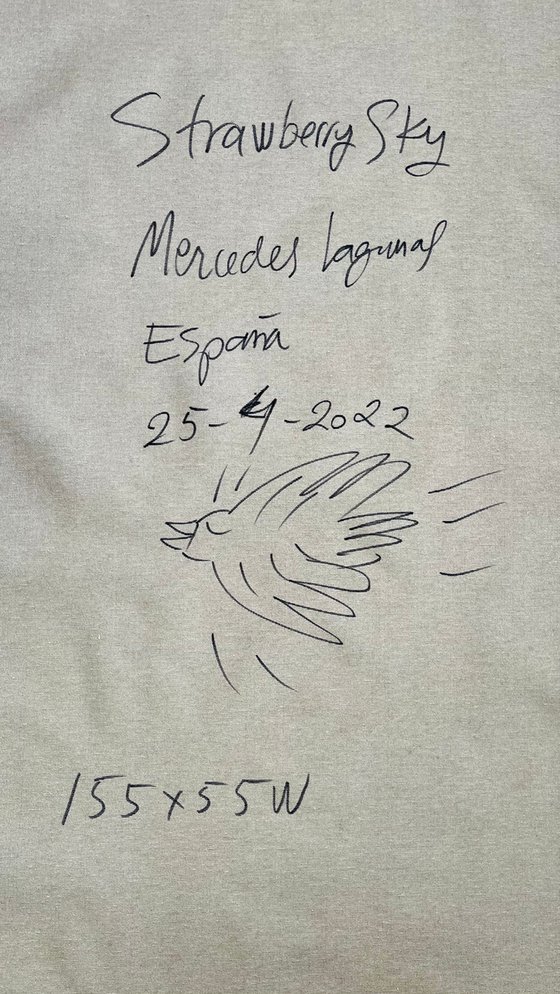 Strawberry Sky
Mercedes Lagunas
España
25-4-2022
155x55W